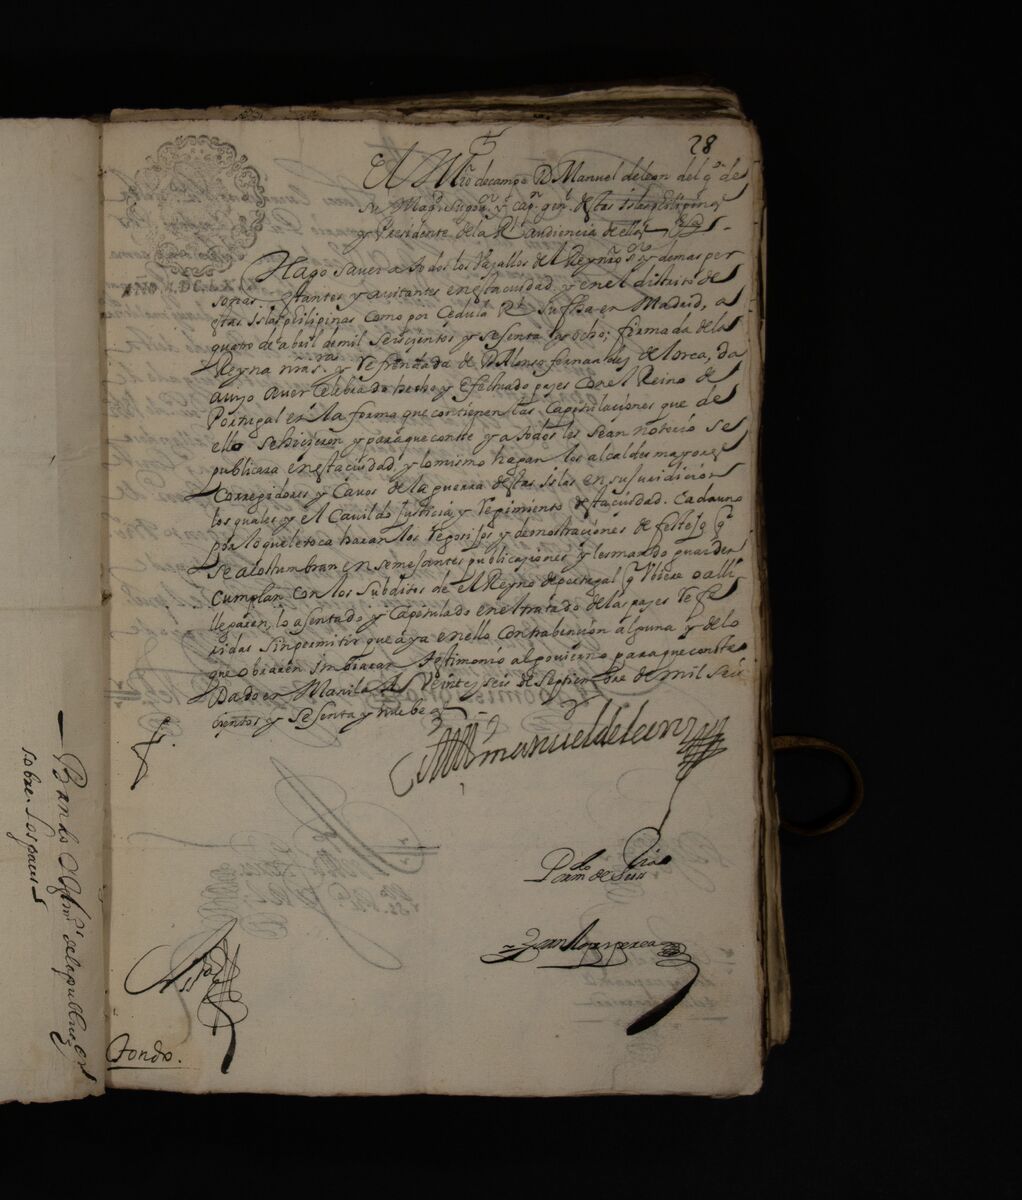 28
El Mro de campo D Manuel de leon del qo de
su Magd su govr y capn genl destas islas philipinas
y Presidente de la Rl audiencia de ellas
Hago Saver a todos los vasallos del Reyno y demas per
sonas estantes y avitantes en esta ciudad y en el distrito de
estas Islas philipinas Como por Cedula Rl su fha en Madrid, a
quatro de abril de mil Seiscientos y Sesenta y ocho; firmada de la
Reyna nra sra y Refrendada de D Alonso fernandez de lorca, da
aviso aver Celebrado hecho y efectuado pazes Con el Reino de
Portugal en la forma que contienen las Capitulaciones que de
ello Se hicieron y para que conste y a todos les Sea notorio Se
publicara en esta ciudad, y lo mismo hagan los alcaldes mayores
Corregidores y Cavos de la guerra destas islas en su juridicion
los quales y el Cavildo Justicia y regimiento desta ciudad. Cada uno
por lo que le toca haran los regosijos y demostraciones de festejo q
Se acostumbran en semejantes publicaciones y les mando guarden
Cumplan con los Subditos de el Reyno de portugal q Ubiere o alli
llegaren, lo asentado y Capitulado en el tratado de las pazes refe
ridas Sin permitir que aya en ello Contrabencion alguna y de lo
que obraren Imbiaran testimonio al govierno para que conste
Dado en Manila A Veinte y seis de Septiembre de mil Seis
cientos y Sesenta y nuebe as
Don manuel de leon
Por mdo de su Sria
Juan
Bando
sobre las paces